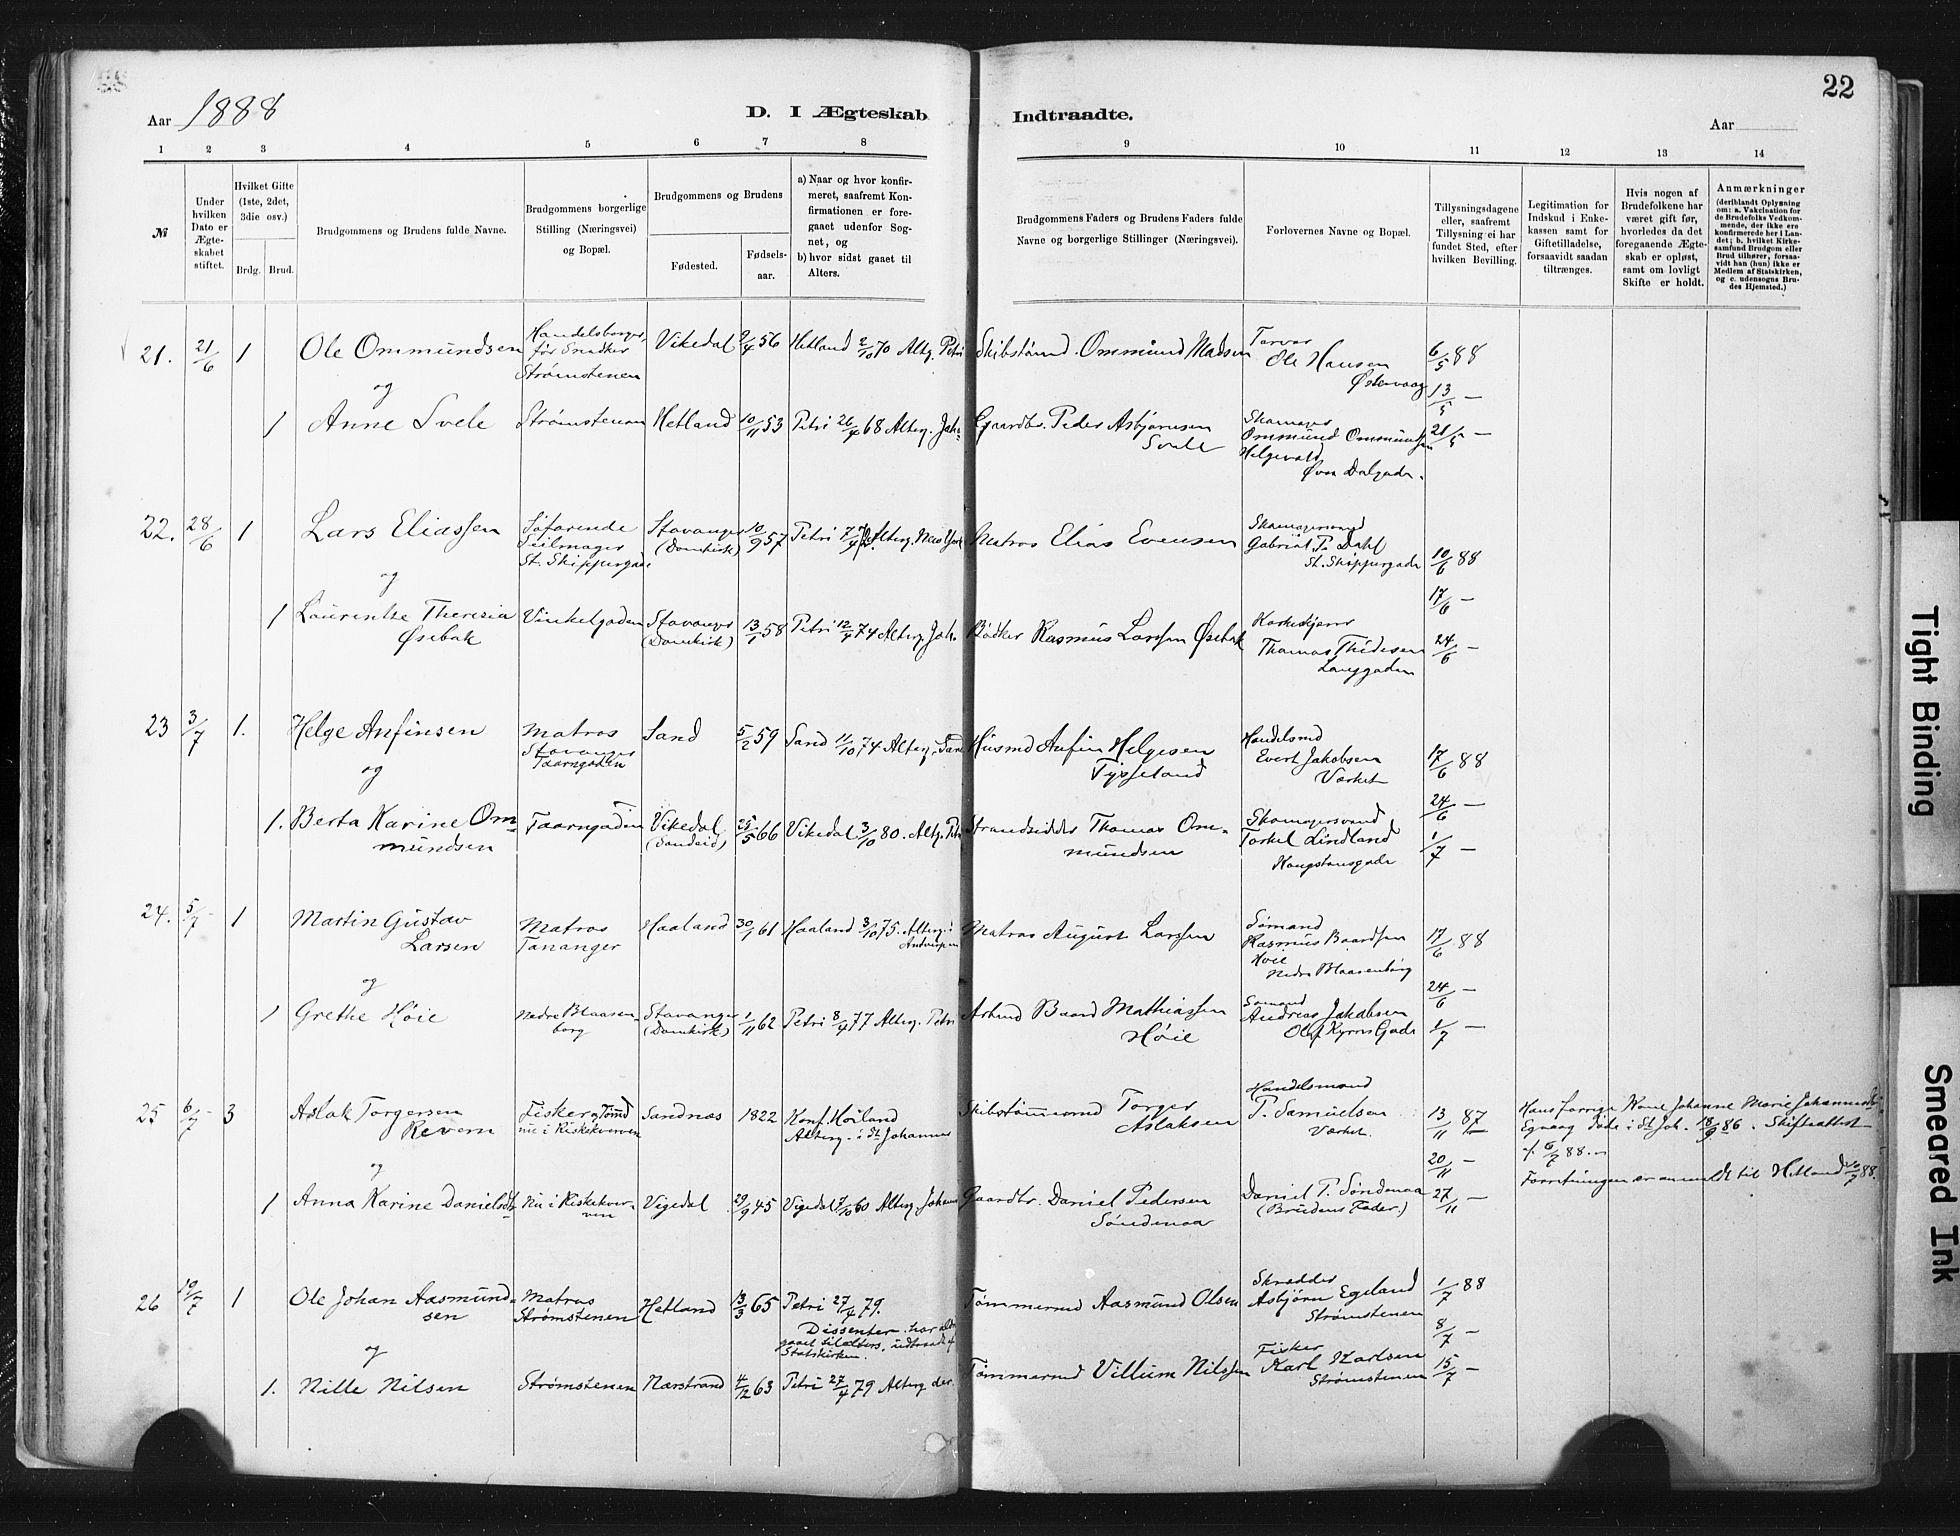 22
Aar 1888
D. I Ægteskab Indtraadte.
Aar
1 2 3 4 5 6 7 8 9 10 11 12 13 14
№
Under hvilken Dato er Ægteskabet stiftet.
Hvilket Gifte (1ste, 2det, 3die osv.)
Brdg. Brud.
Brudgommens og Brudens fulde Navne.
Brudgommens borgerlige Stilling (Næringsvei) og Bopæl.
Brudgommens og Brudens
Fødested.
Fødselsaar.
a) Naar og hvor konfirmeret, saafremt Konfirmationen er foregaaet udenfor Sognet, og
b) hvor sidst gaaet til Alters.
Brudgommens Faders og Brudens Faders fulde Navne og borgerlige Stillinger (Næringsvei).
Forlovernes Navne og Bopæl.
Tillysningsdagene eller, saafremt Tillysning ei har fundet Sted, efter hvilken Bevilling.
Legitimation for Indskud i Enkekassen samt for Giftetilladelse, forsaavidt saadan tiltrænges.
Hvis nogen af Brudefolkene har været gift før, hvorledes da det foregaaende Ægteskab er opløst, samt om lovligt Skifte er holdt.
Anmærkninger (deriblandt Oplysning om: a. Vakcination for de Brudefolks Vedkommende, der ikke ere konfirmerede her i Landet; b. hvilket Kirkesamfund Brudgom eller Brud tilhører, forsaavidt han (hun) ikke er Medlem af Statskirken, og c. udensogns Brudes Hjemsted.)
21. 21/6 1 Ole Ommundsen Handelsborger, før Snedker Strømstenen Vikedal 2/4 56 Hetland 2/10 70 Alterg. Petri Skibstømmd. Ommund Madsen Ole Hansen Østervaag 6/5 88
og
13/5 —
1 Anne Svele Strømstenen Hetland 10/11 53 Petri 26/4 68 Alterg. Joh. Gaardbr. Peder Asbjørnsen Svele Skomager Ommund Ommundsen Helgevold Øvre Dalgade. 21/5 —
22. 28/6 1 Lars Eliassen Søfarende Seilmager St. Skippergade Stavanger (Domkirk) 10/9 57 Petri 7/4 72 Alterg. New York Matros Elias Evensen Skomagersvend Gabriel P. Dahl St. Skippergade 10/6 88
og
17/6 —
1 Laurentze Theresia Øsebak Vinkelgaden Stavanger (Domkirk) 13/1 58 Petri 12/4 74 Alterg. Joh. Bødker Rasmus Larssen Øsebak Thomas Thidesen Langgaden 24/6 —
23 3/7 1. Helge Anfinsen Matros Stavanger Taarngaden Sand 5/2 59 Sand 11/10 74 Alterg. Sand Husmd Anfin Helgesen Tysseland Handelsmd Evert Jakobsen Værket 17/6 88
og
24/6 —
1. Berta Karine Ommundsen Taarngaden Vikedal (Sandeid) 25/5 66 Vikedal 3/10 80. Alterg. Petri Strandsidder Thomas Ommundsen Skomagersvend Torkel Lindland Kongstensgade 1/7 —
24. 5/7 1 Martin Gustav Larsen Matros Tananger Haaland 30/1 61 Haaland 3/10 75. Alterg. i Antwerpen Matros August Larssen Sømand Rasmus Baardsen Høie Nedre Blaasenborg 17/6 88
og
24/6 —
1 Grethe Høie Nedre Blaasenborg Stavanger (Domkirk) 1/11 62 Petri 8/4 77 Alterg. Petri Arbmd Baard Mathiassen Høie Sømand Andreas Jakobsen Olaf Kyrres Gade 1/7 —
25 6/7 3 Aslak Torgersen Revem Fisker og Tømd nu i Kiskekverven Sandnæs 1822 Konf. Høiland Alterg. i St Johannes Skibstømmermd Torger Aslaksen Handelsmand P. Samuelsen Værket. 13/11 87 Hans forrige Kone Johanne Marie Johannesd.
Egvaag døde i St Joh. 18/9 86. Skifteattest
20/11 — 6/7 88.
og
1 Anna Karine Danielsdtr Nu i Kiskekverven Vigedal 29/9 45 Vigedal 7/10 60 Alterg. Johannes Gaardbr. Daniel Pedersen Søndenaa Daniel P. Søndenaa (Brudens Fader.) 27/11 — Forretningen er anmeldt til Hetland 88.
26 19/7 1 Ole Johan Aasmundsen Matros Strømstenen Hetland 13/3 65 Petri 27/4 79. Dissenter. har aldri gaaet til alters, udtraadt af Statskirken. Tømmermd Aasmund Olsen Skrædder Asbjørn Egeland Strømstenen 1/7 88
og
8/7 —
1. Nille Nilsen Strømstenen Nærstrand 4/12 63 Petri 27/4 79 Alterg. der. Tømmermd Villum Nilssen Fisker Karl Karlsen Strømstenen 15/7 —
Tight Binding
Smeared Ink